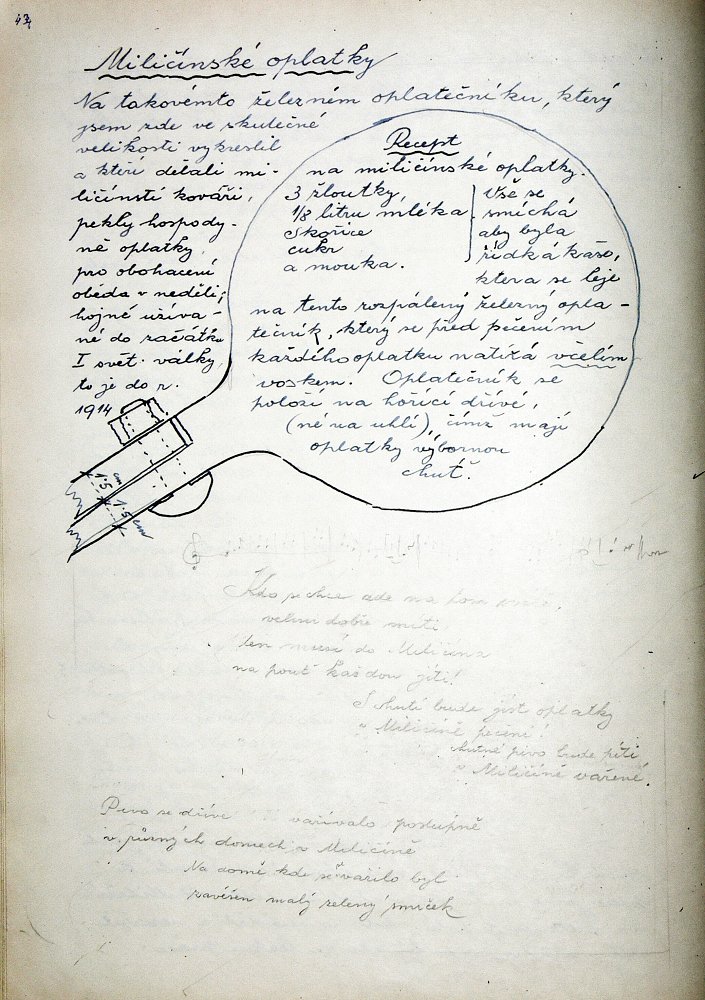 43
Miličínské oplatky
Na takovémto železném oplatečníku, který
jsem zde ve skutečné
velikosti vykreslil
a kteří dělali mi-
ličínstí kováři,
pekly hospody-
ně oplatky
pro obohacení
oběda v neděli;
hojně užíva-
né do začátku
I svět. války,
to je do r.
1914
Recept
na miličínské oplatky.
3 žloutky,
1/8 litru mléka
Skořice
cukr
a mouka.
Vše se
smíchá
aby byla
řídká kaše,
ktera se leje
na tento rozpálený železný opla-
tečník, který se před pečením
každého oplatku natírá včelím
voskem. Oplatečník se
položí na hořící dřívé,
(né na uhlí), čímž mají
oplatky výbornou
chuť.
1·5 cm
1·5 cm
Kdo se chce zde na tom
velmi dobře míti
ten musí do Miličína
na pouť každou jíti!
S chutí bude jíst oplatky
v Miličíně pečení!
chutné pivo bude píti
v Miličíně vařené.
Pivo se dříve vařívalo postupně
v různých domech v Miličíně
Na domě kde se vařilo byl
zavěšen malý zelený smrček